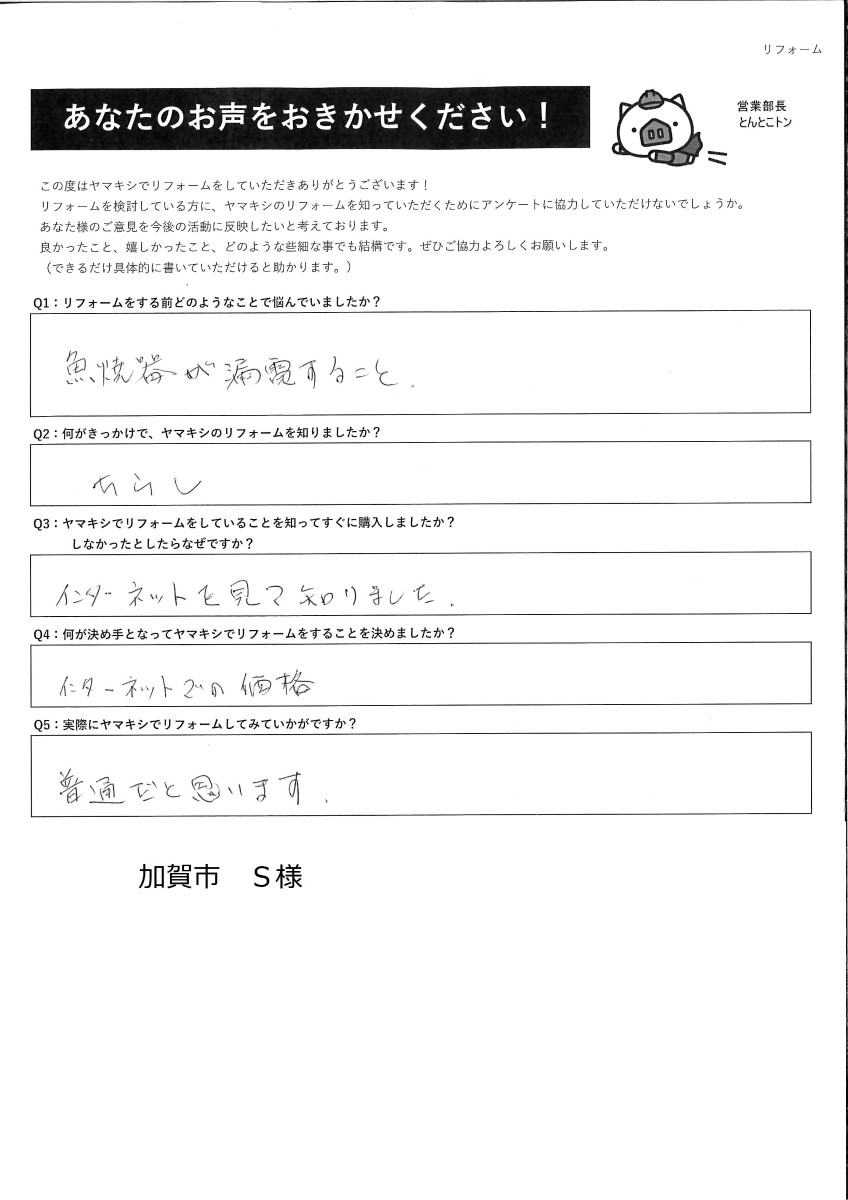 リフォーム
あなたのお声をおきかせください！
営業部長
とんとこトン
この度はヤマキシでリフォームをしていただきありがとうございます！
リフォームを検討している方に、ヤマキシのリフォームを知っていただくためにアンケートに協力していただけないでしょうか。
あなた様のご意見を今後の活動に反映したいと考えております。
良かったこと、嬉しかったこと、どのような些細な事でも結構です。ぜひご協力よろしくお願いします。
（できるだけ具体的に書いていただけると助かります。）
Q1：リフォームをする前どのようなことで悩んでいましたか？
魚焼器が漏電すること.
Q2：何がきっかけで、ヤマキシのリフォームを知りましたか？
ちらし
Q3：ヤマキシでリフォームをしていることを知ってすぐに購入しましたか？
しなかったとしたらなぜですか？
インターネットを見て知りました.
Q4：何が決め手となってヤマキシでリフォームをすることを決めましたか？
インターネットでの価格
Q5：実際にヤマキシでリフォームしてみていかがですか？
普通だと思います.
加賀市　S様